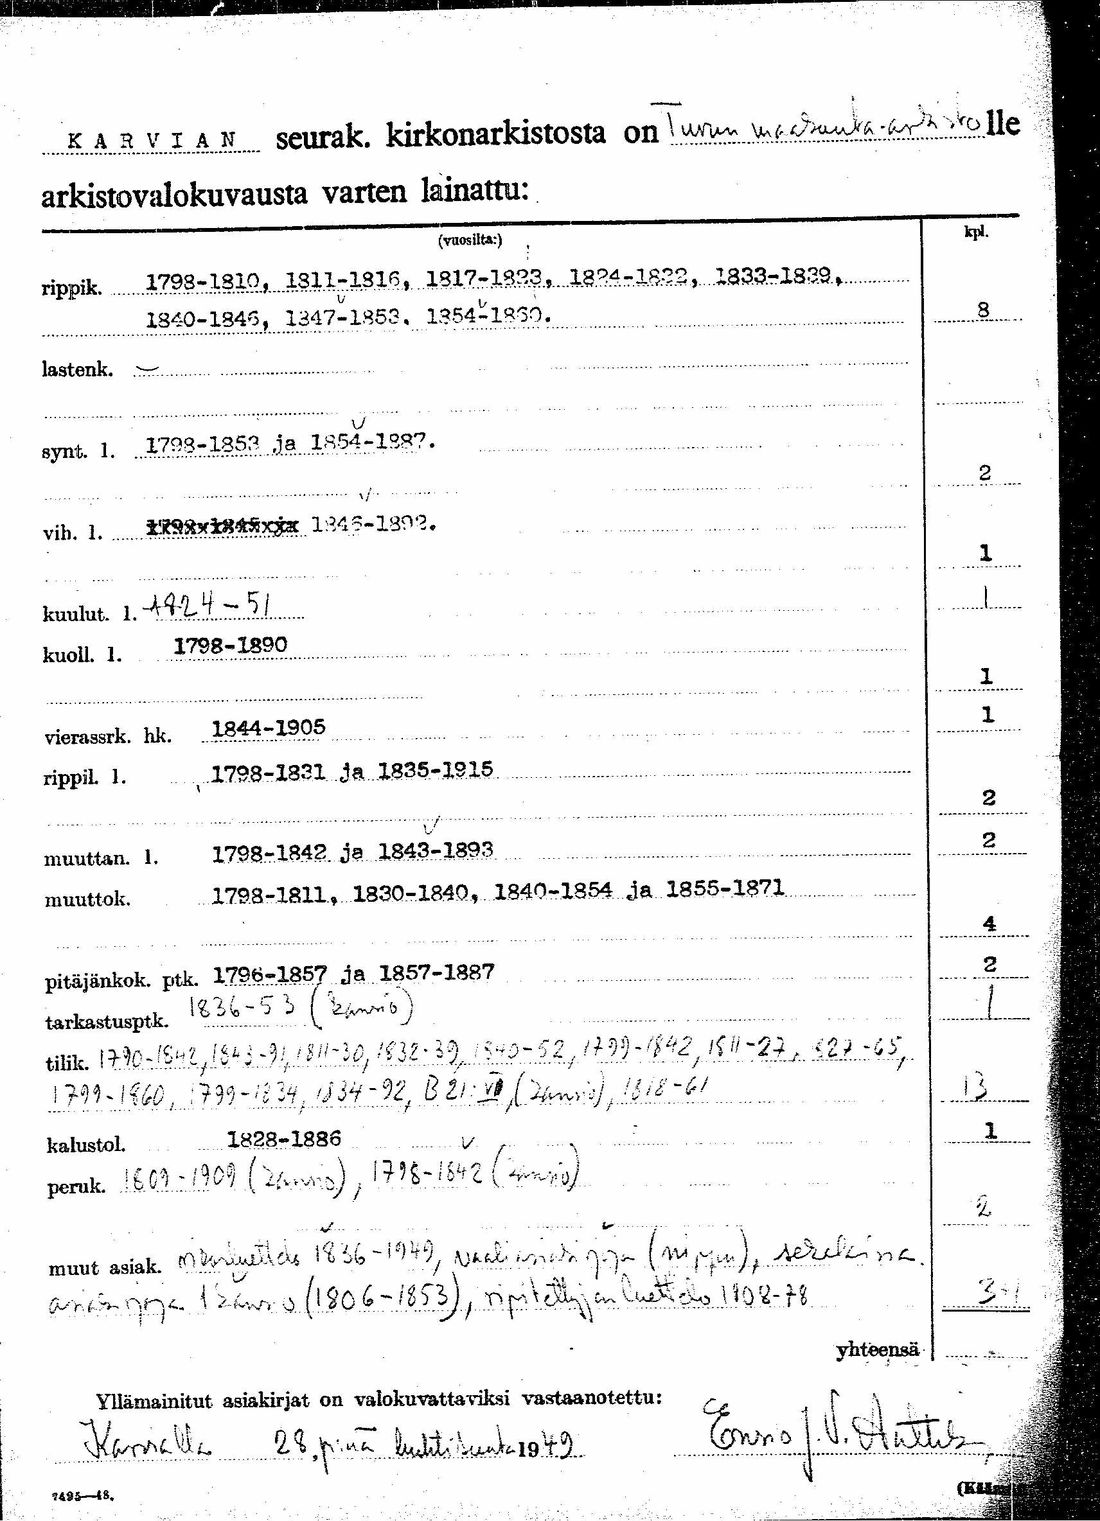 KARVIAN seurak. kirkonarkistosta on Turun maakunta-arkisto lle
arkistovalokuvausta varten lainattu:
(vuosilta:) kpl.
rippik. 1798-1810, 1811-1816, 1817-1823, 1824-1832, 1833-1839,
1840-1846, 1847-1853, 1854-1860. 8
lastenk. —
synt. l. 1798-1853 ja 1854-1887.
2
vih. l. 1846-1892.
1
kuulut. l. 1824-51 1
kuoll. l. 1798-1890
1
vierassrk. hk. 1844-1905 1
rippil. l. 1798-1831 ja 1835-1915
2
muuttan. l. 1798-1842 ja 1843-1893 2
muuttok. 1798-1811, 1830-1840, 1840-1854 ja 1855-1871
4
pitäjänkok. ptk. 1796-1857 ja 1857-1887 2
tarkastusptk. 1836-53 (kansio) 1
tilik. 1790-1842, 1843-91, 1811-30, 1832-39, 1840-52, 1799-1842, 1811-27, 827-65,
1799-1860, 1799-1834, 1834-92, B 21: (kansio), 1818-61 13
kalustol. 1828-1886 1
peruk. 1809-1909 (kansio), 1798-1842 (kansio)
2
muut asiak. 1836-1949, vaaliasiakirjoja (nippu), sekalaisia
asiakirjoja 1 kansio (1806-1853), ripitettyjen luettelo 1808-78 3
yhteensä
Yllämainitut asiakirjat on valokuvattaviksi vastaanotettu:
Karvialla 28 p:nä huhtikuuta 1949 J. V.
7495—48.